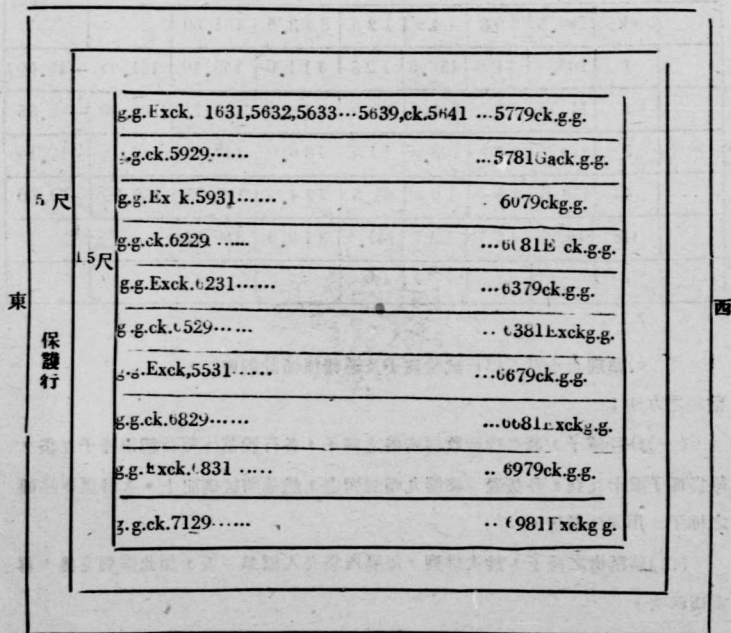 g.g.Exck. 1631,5632,5633…5639,ck.5641 …5779ck.g.g.
.g.ck.5929…… …5781Gack.g.g.
g.g.Ex k.5931…… 6079ckg.g.
g.g.ck.6229 …… …6081E ck.g.g.
g.g.Exck.6231…… …6379ck.g.g.
g.g.ck.6529…… …6381Exckg.g.
g.g.Exck,5531…… …6679ck.g.g.
g.g.ck.6829…… …6681Exckg.g.
g.g.Exck.6831 …… …6979ck.g.g.
g.g.ck.7129…… …6981Exckg g.
5尺
15尺
東
保護行
西